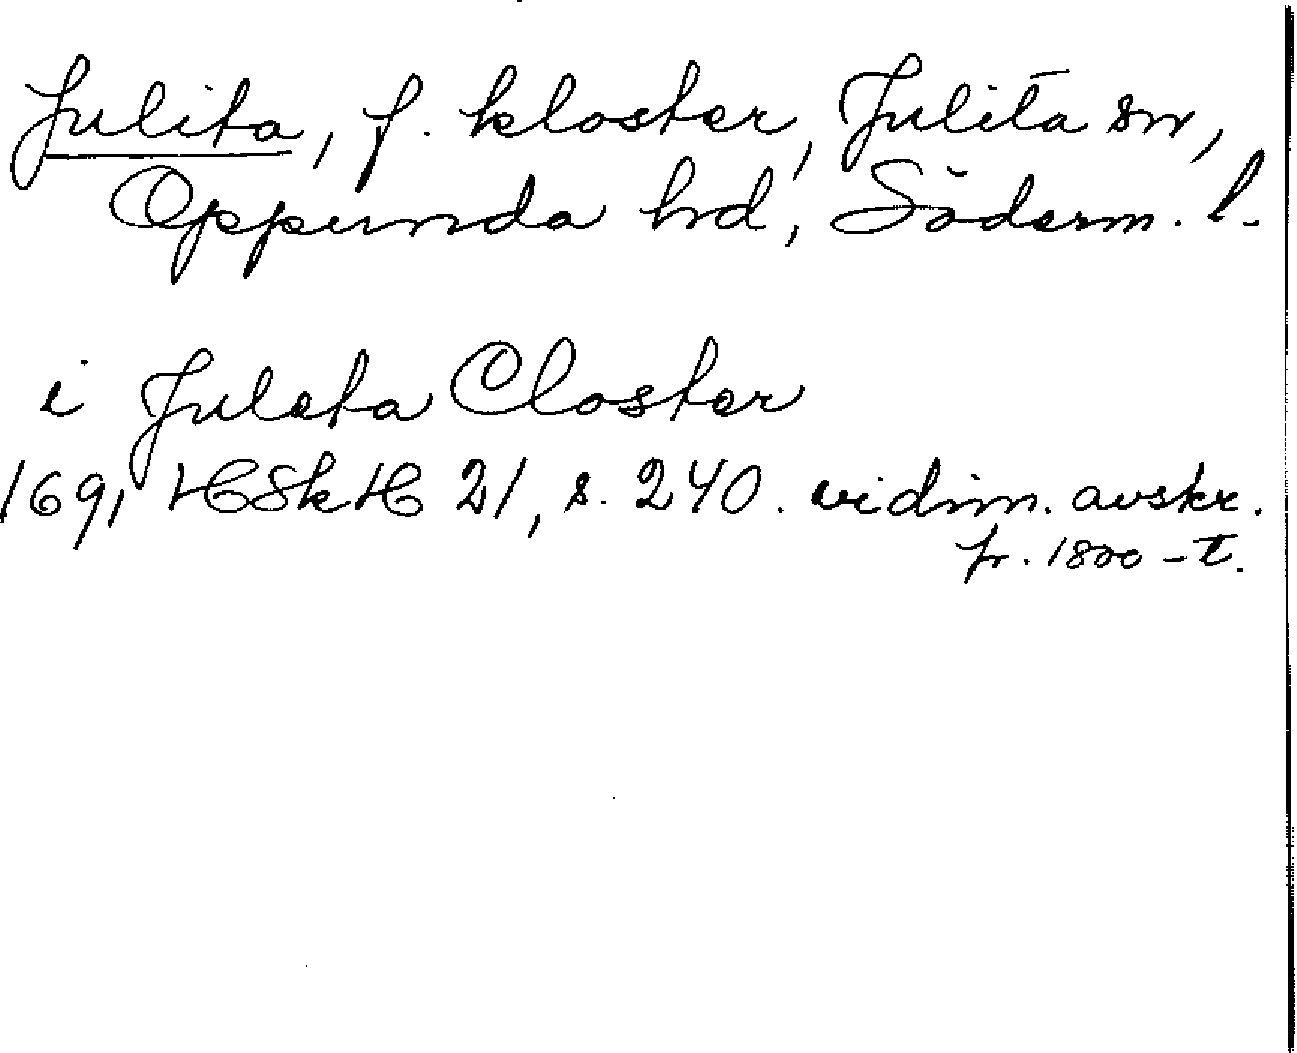 Julita, f. kloster, Julita sn,
Oppunda hd, Söderm. l.
i Juleta Closter
1691 HSkH 21, s. 240. vidim. avskr.
fr. 1800-t.